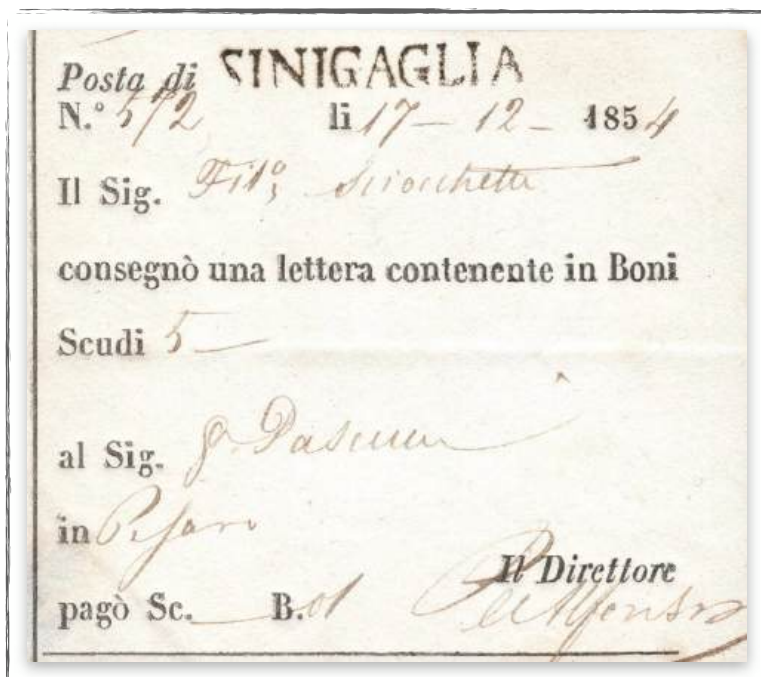 Posta di SINIGAGLIA
N.° 572 li 17 - 12 - 1854
Il Sig. Fil.º Sciocchetti
consegnò una lettera contenente in Boni
Scudi 5 —
al Sig.
in Pesaro
Il Direttore
pagò Sc. — B. 01